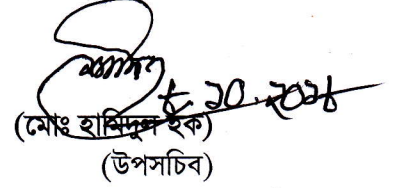 ৮.১০.২০১৮
(মোঃ হামিদুল হক)
(উপসচিব)